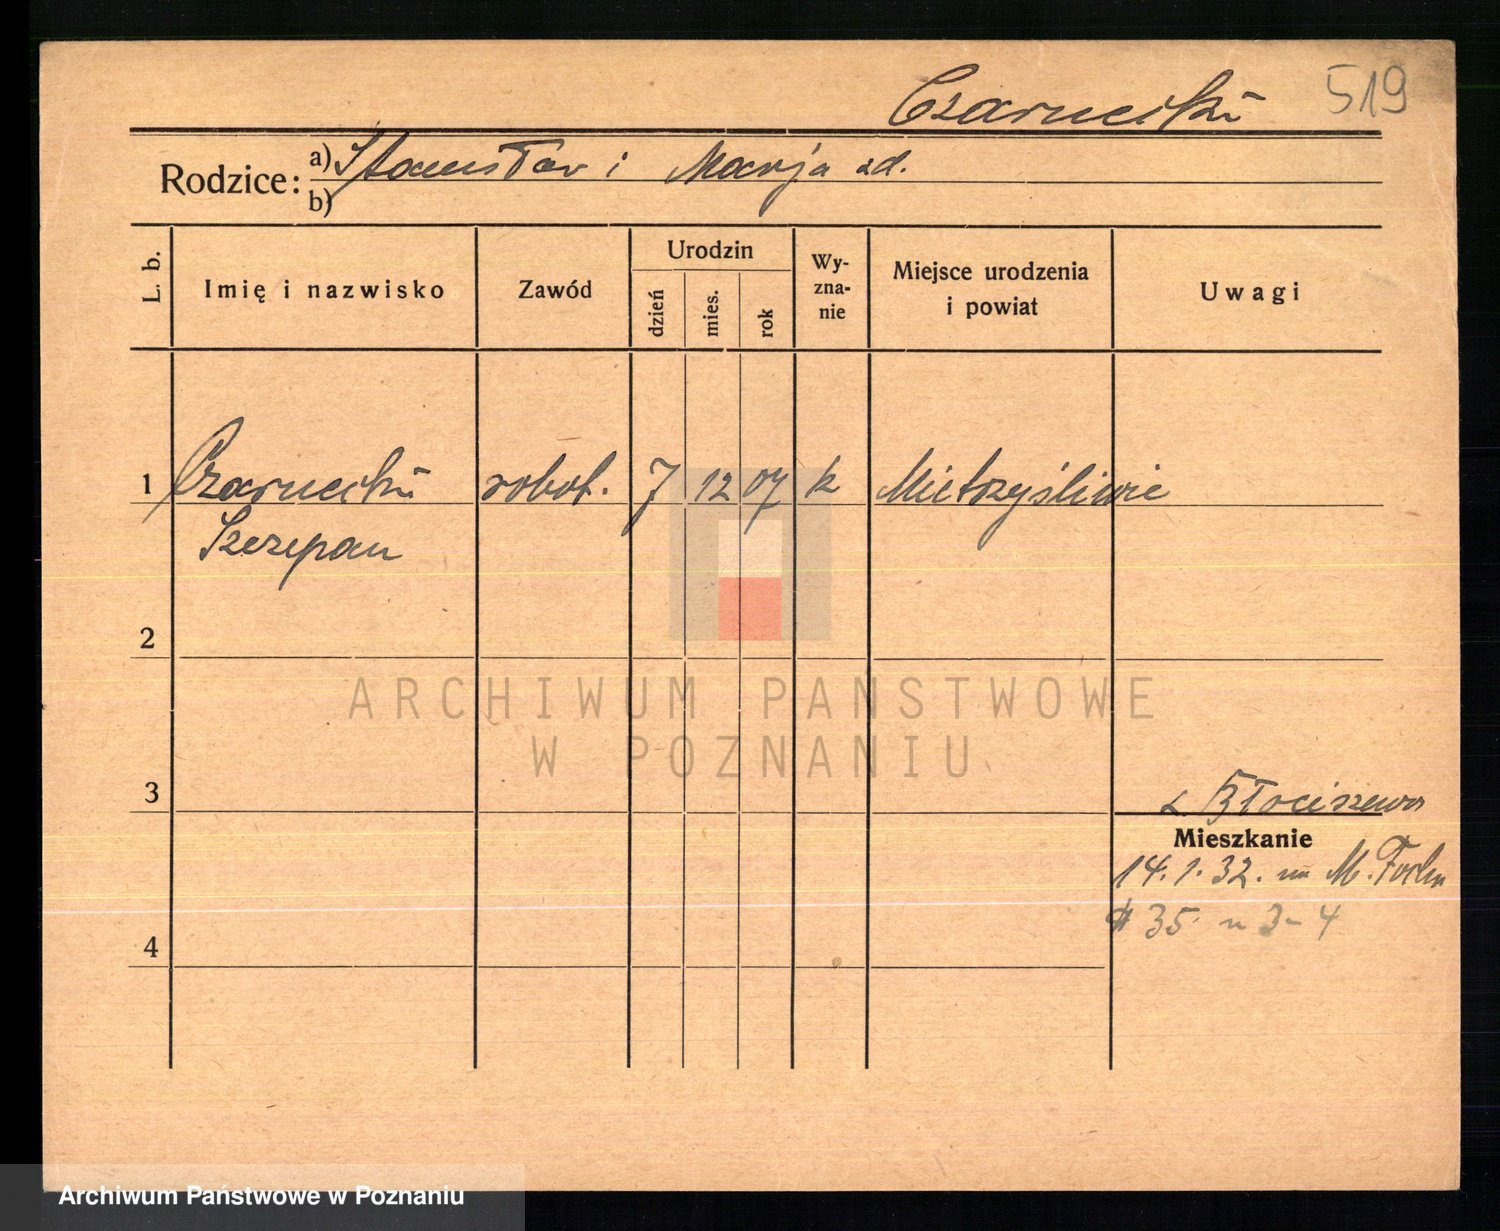 Czarnecki 519
Rodzice: a) Stanisław i Marja zd.
b)
L. b.
Imię i nazwisko
Zawód
Urodzin
dzień
mies.
rok
Wy-
zna-
nie
Miejsce urodzenia
i powiat
Uwagi
1 Czarnecki robot. 7 12 07 k
Szczepan
2
ARCHIWUM PAŃSTWOWE
W POZNANIU
3
z Błociszewa
Mieszkanie
14.1.32. M. Focha
35 3-4
4
Archiwum Państwowe w Poznaniu